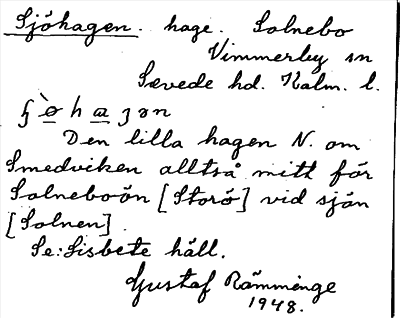 Sjöhagen. hage. Solnebo
Vimmerby sn
Sevede hd. Kalm. l.
Den lilla hagen N. om
Smedviken alltså mitt för
Solneboön [Storö] vid sjön
[Solnen].
Se: Sisbete häll.
Gustaf Rämminge
1948.